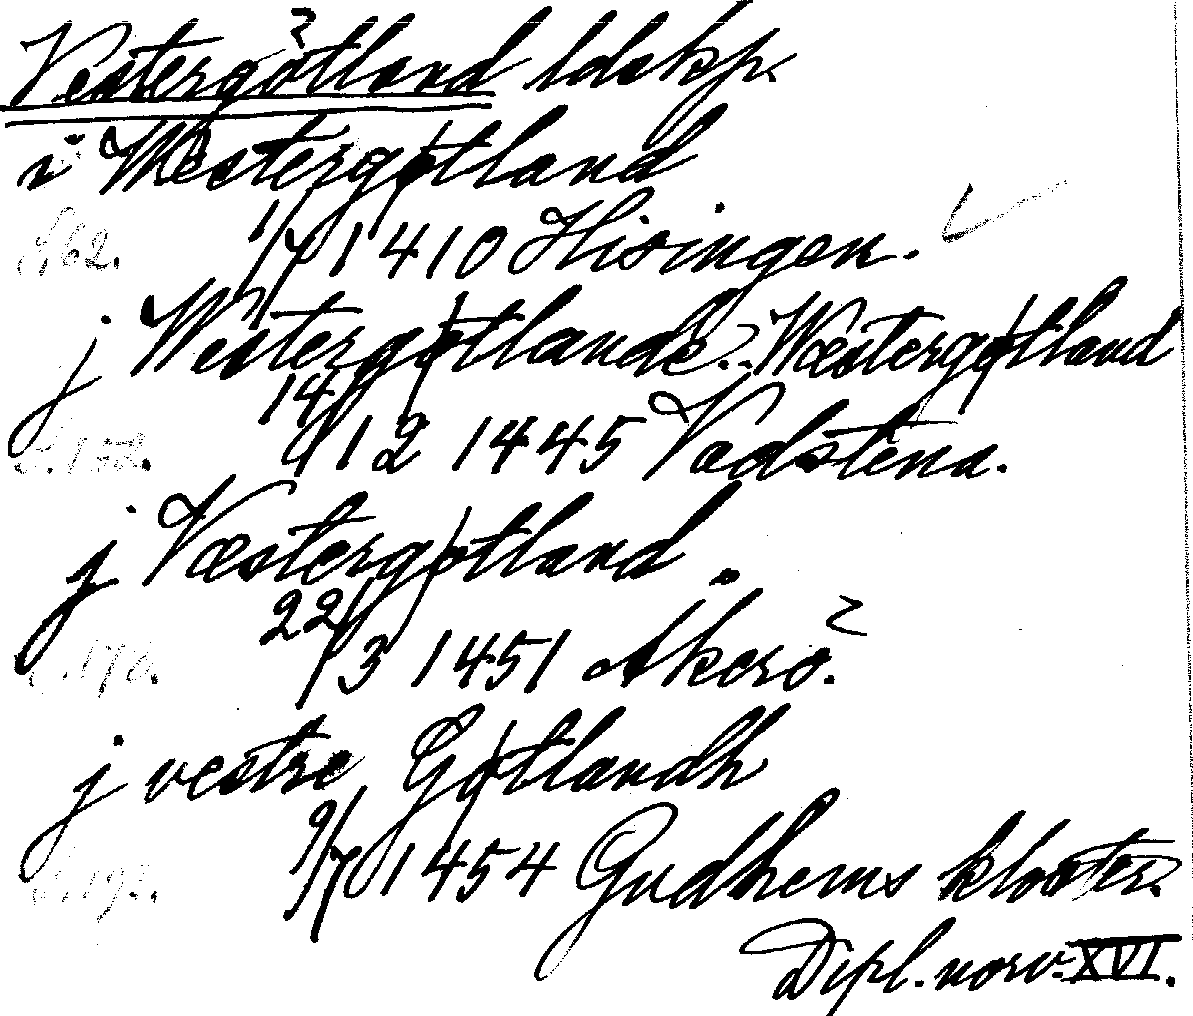 Vestergötland ldskp.
i Westergøtland
S. 62. 1/7 1410 Hisingen.
j Westergøtlande. Wæstergøtland
S. 152. 14/12 1445 Vadstena.
j Væstergøtland
S. 170. 22/3 1451 Åkerö.
j vestre Gøtlandh
9/7 1454 Gudhems kloster.
Dipl. norv. XVI.